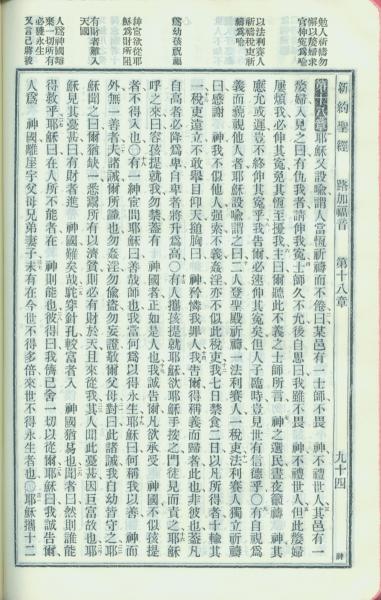 新約聖經　路加福音　第十八章　九十四　神
勉人祈禱勿
懈以嫠婦求
官伸冤為喻
以法利賽人
祈禱稅吏祈
禱為喻
為幼孩祝福
紳宦欲從耶
穌為財所阻
有財者難入
天國
人為神國離
棄一切所有
必獲永生
又言己將被
第十八章耶穌又設喻謂人當恆祈禱而不倦曰某邑有一士師不畏　神不禮世人其邑有一
嫠婦入見之曰有仇我者請伸我冤士師久不允後自思曰我雖不畏　神不禮世人但此嫠婦
屢煩我必伸其冤免其恆至擾我主曰爾聽此不義之士師所言　神之選民晝夜籲禱　神其
應允或遲豈不終伸其冤乎我告爾必速伸其冤矣但人子臨時豈見世有信德乎○有自視為
義而藐視他人者耶穌設喻謂之曰二人登聖殿祈禱一法利賽人一稅吏法利賽人獨立祈禱
曰感謝　神我不似他人強索不義姦淫亦不似此稅吏我七日禁食二日以凡所得者十輸其
一稅吏遠立不敢舉目仰天搥胸曰　神矜憐我罪人我告爾得稱義而歸者此也非彼也蓋凡
自高者必降為卑自卑者將升為高○有人攜孩提就耶穌欲耶穌手按之門徒見而責之耶穌
呼之來曰容孩提就我勿禁蓋有　神國者正如是人也我誠告爾凡欲承受　神國不似孩提
者不得入也○有一紳宦問耶穌曰善哉師也我當何為以得永生耶穌曰何稱我以善　神而
外無一善者夫諸誡爾所識也勿姦淫勿殺勿偷盜勿妄證敬爾父母對曰此諸誡我自幼皆守之耶
穌聞之曰爾猶缺一悉鬻所有以濟貧則必有財於天且來從我其人聞此憂甚因巨富故也耶
穌見其憂甚曰有財者進　神國難矣哉駝穿針孔較富者入　神國猶易也聞者曰然則誰能
得救乎耶穌曰在人所不能者在　神則能也彼得曰我儕已舍一切以從爾耶穌曰我誠告爾
人為　神國離屋宇父母兄弟妻子未有在今世不得多倍來世不得永生者也○耶穌攜十二